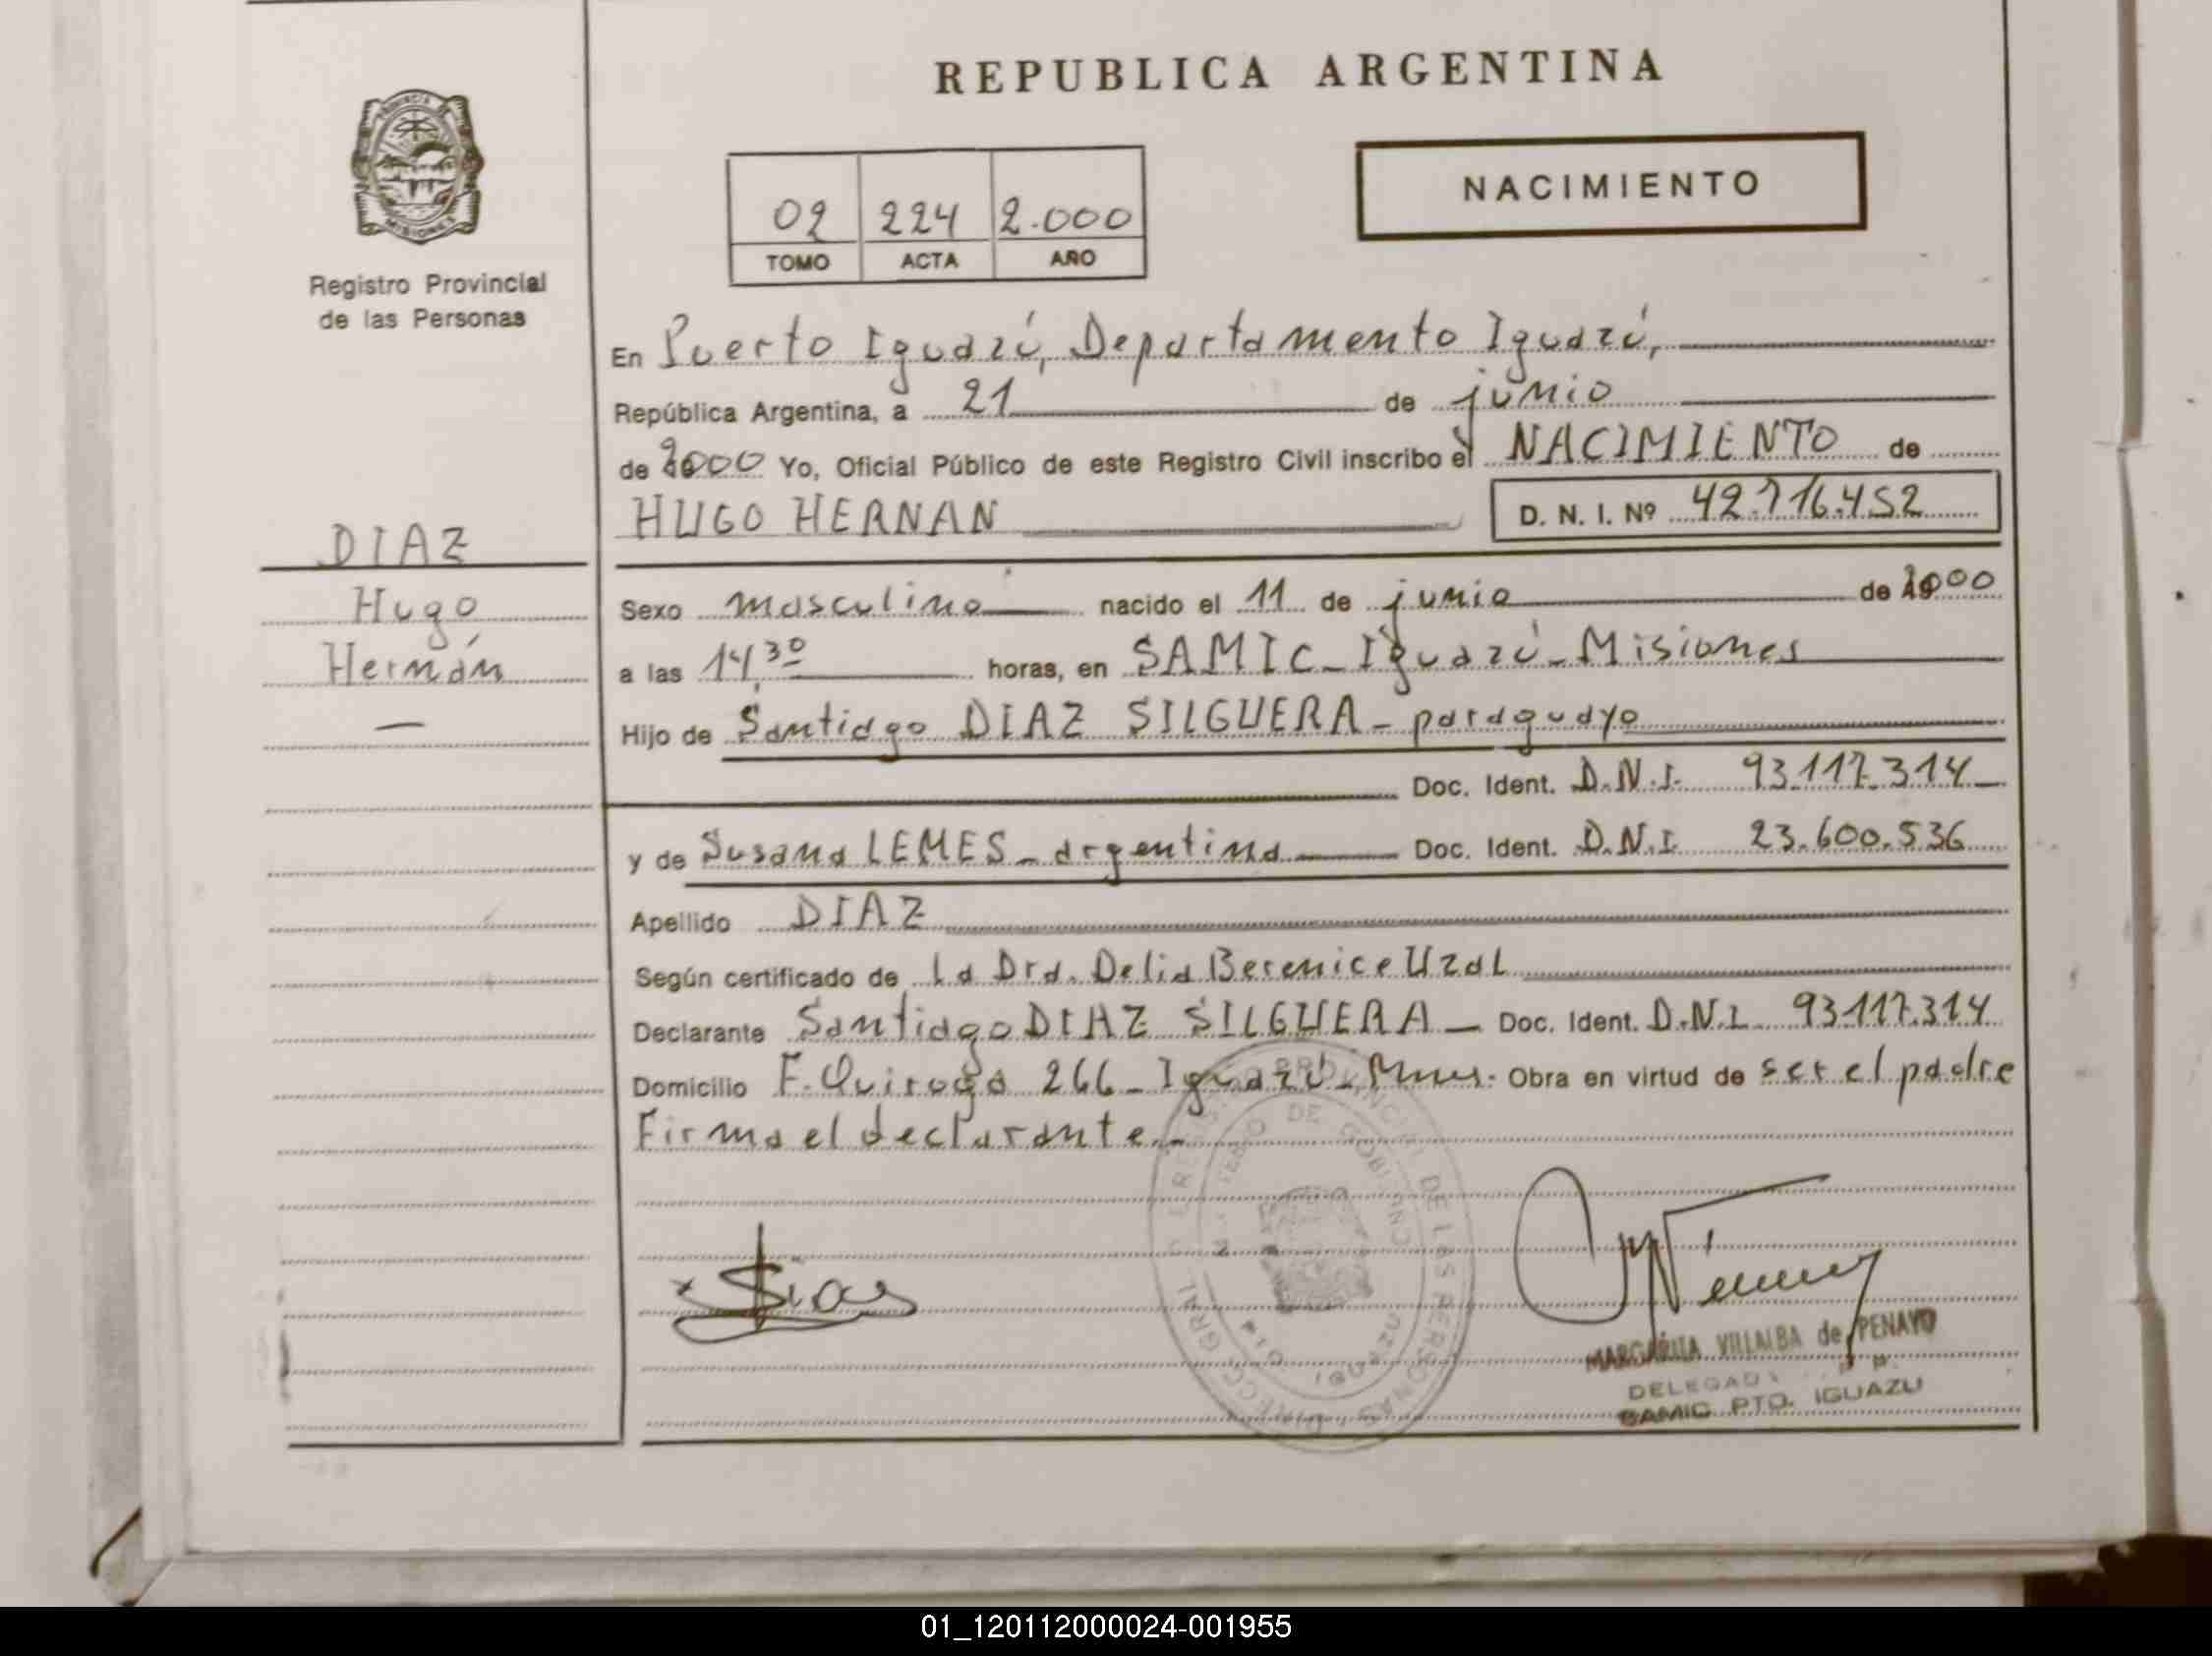 REPUBLICA ARGENTINA
NACIMIENTO
02 224 2.000
TOMO ACTA AÑO
PROVINCIA DE
MISIONES
Registro Provincial
de las Personas
En Puerto Iguazú, Departamento Iguazú,
República Argentina, a 21 de junio
de 2000 Yo, Oficial Público de este Registro Civil inscribo el NACIMIENTO de
HUGO HERNAN D. N. I. Nº 42.716.452
DIAZ
Hugo
Hernán
Sexo masculino nacido el 11 de junio de 2000
a las 14,30 horas, en SAMIC - Iguazú - Misiones
Hijo de Santiago DIAZ SILGUERA - paraguayo
Doc. Ident. D.N.I. 93.117.314
y de Susana LEMES - argentina Doc. Ident. D.N.I. 23.600.536
Apellido DIAZ
Según certificado de La Dra. Delia Berenice Uzal
Declarante Santiago DIAZ SILGUERA Doc. Ident. D.N.I. 93.117.314
Domicilio F. Quiroga 266 - Iguazú - Mnes. Obra en virtud de ser el padre
Firma el declarante.-
DIRECC. GRAL. REG. PROVINCIAL DE LAS PERSONAS
MARGARITA VILLALBA de PENAYO
DELEGADA
SAMIC PTO. IGUAZU
01_120112000024-001955